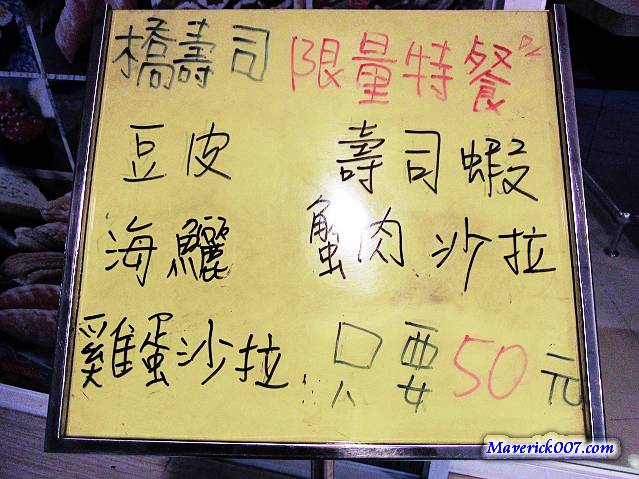 橋壽司 限量特餐
豆皮 壽司蝦
海鱺 蟹肉沙拉
雞蛋沙拉 只要50元
Maverick007.com